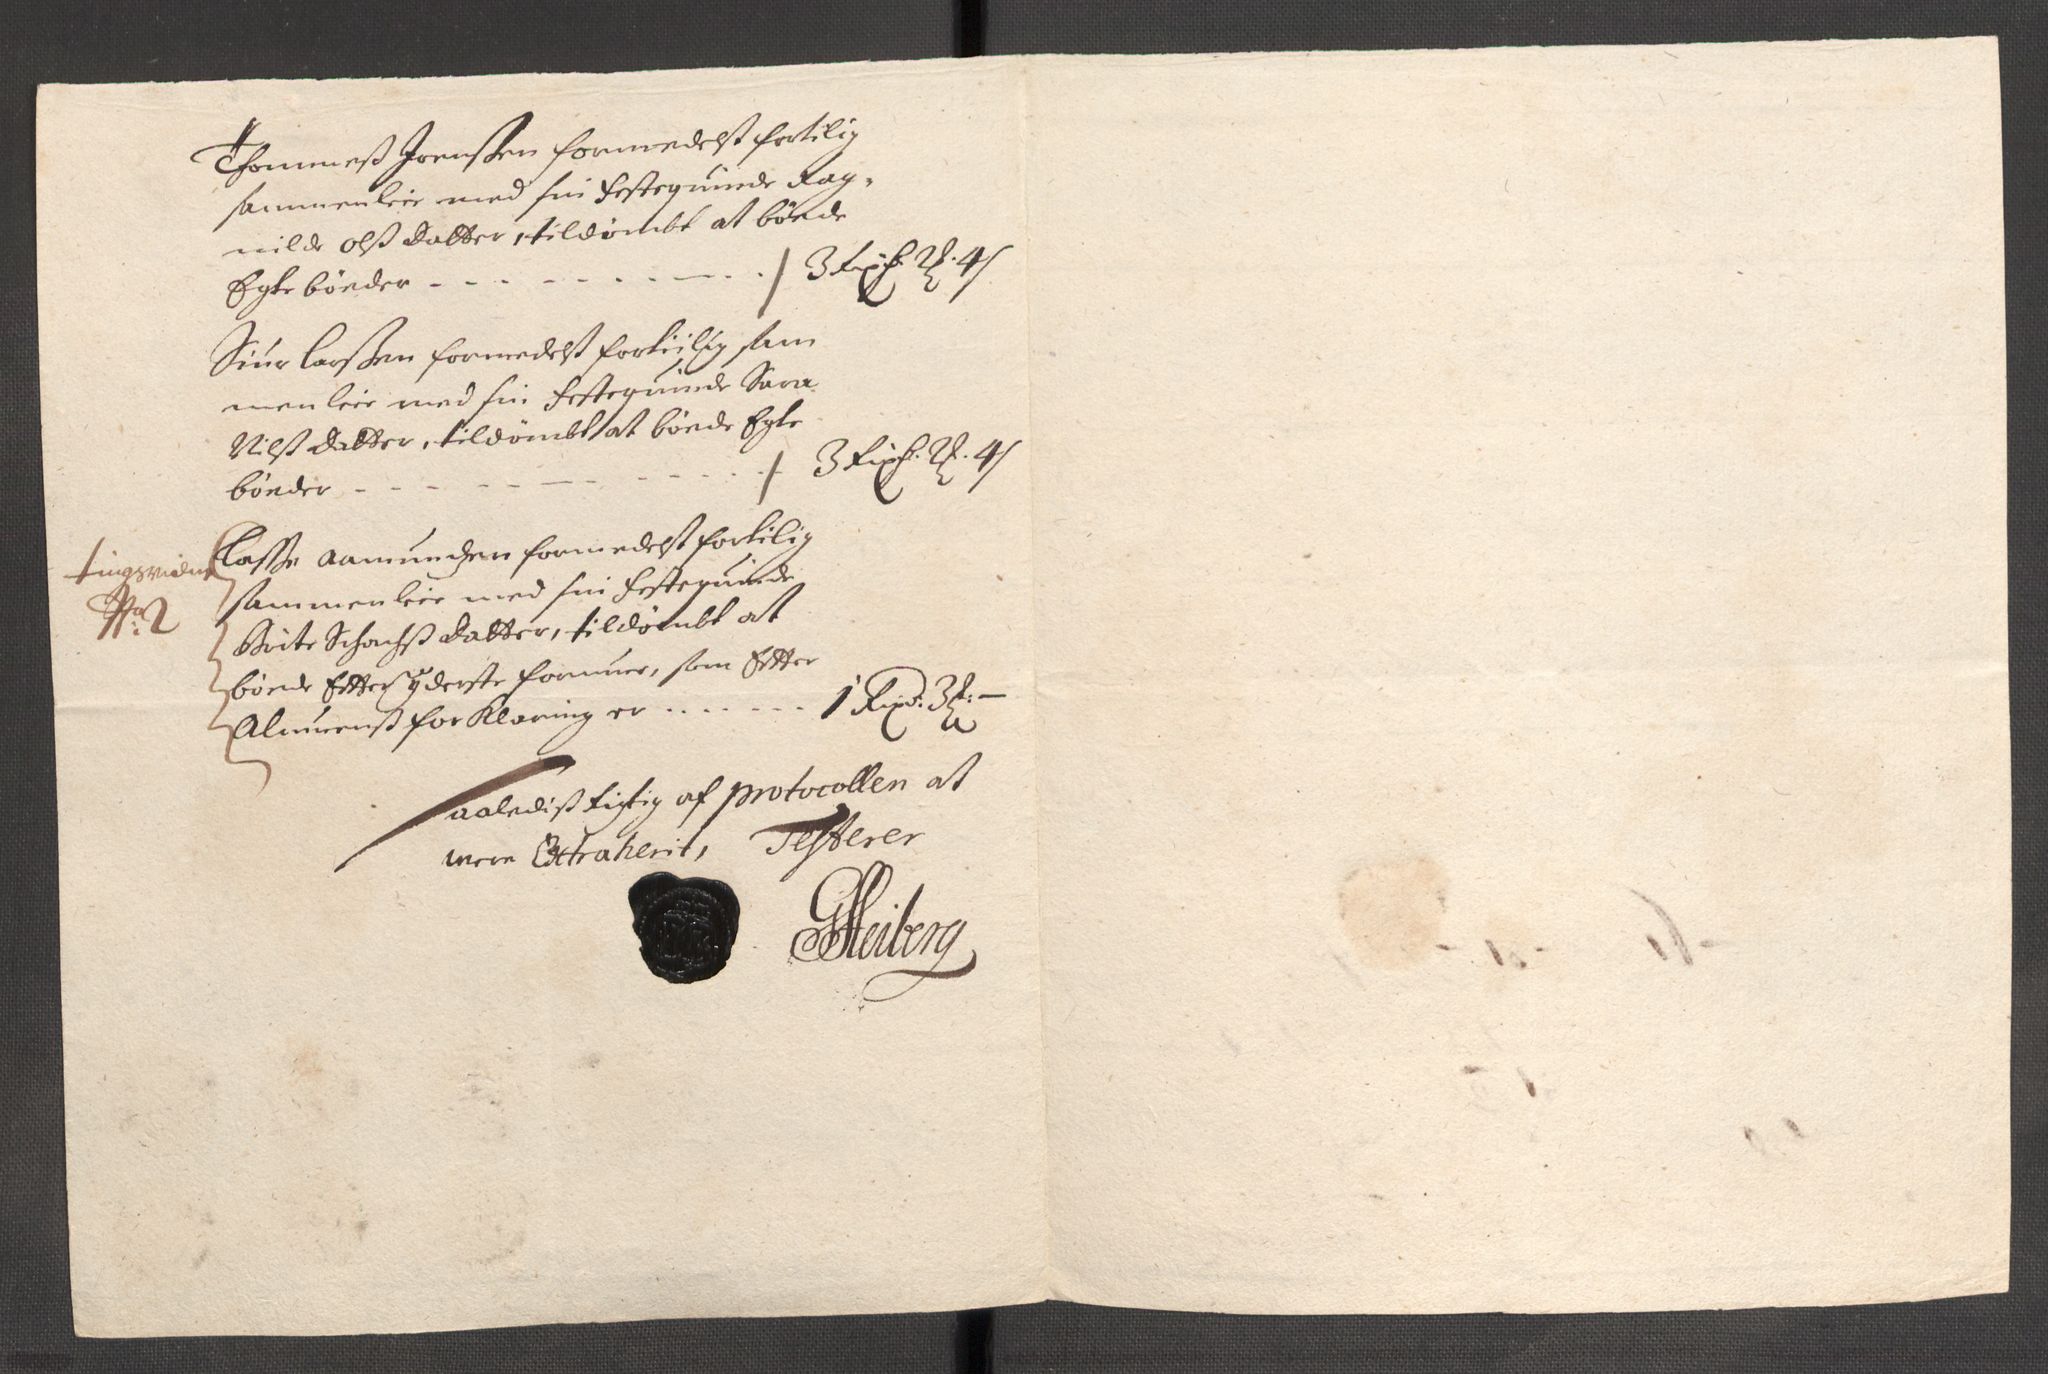 Thommeß Joenßen formedelst fortilig
sammenleie med sin festequinde Rag-
nilde Olß datter, tildømbt at bøede
Egte bøeder - - - - - - - - - / 3 Rixd. 2 . 4 s
Siur Larßen formedelst fortiilig sam
menleie med sin festequinde Sara
Nilß datter, tildømbt at bøede Egte
bøeder - - - - - - - - - / 3 Rixd. 2 . 4 s
tingsvidne
No: 2
Lasse Aamundsen formedelst fortilig
sammenleie med sin festequinde
Brite Schachß datter, tildømbt at
bøede Efter yderste formue, som Efter
Almuenß forklaring er - - - - - - 1 Rixd: 3 : -
Saaledeß rigtig af protocollen at
were Extraherit, Testerer
GHeiberg